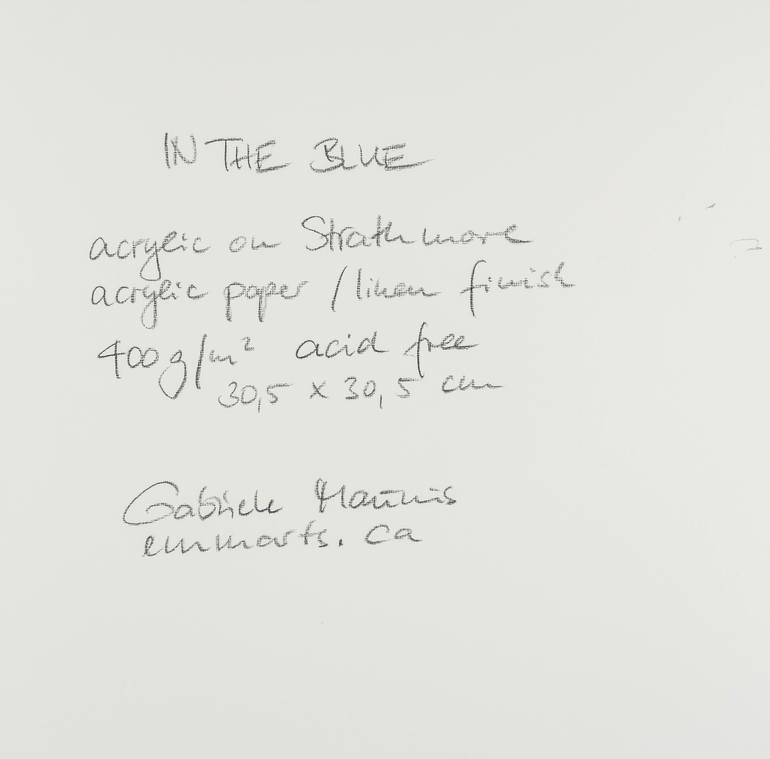 IN THE BLUE
acrylic on Strathmore
acrylic paper / linen finish
400 g/m² acid free
30,5 x 30,5 cm
Gabriele
emmarts.ca